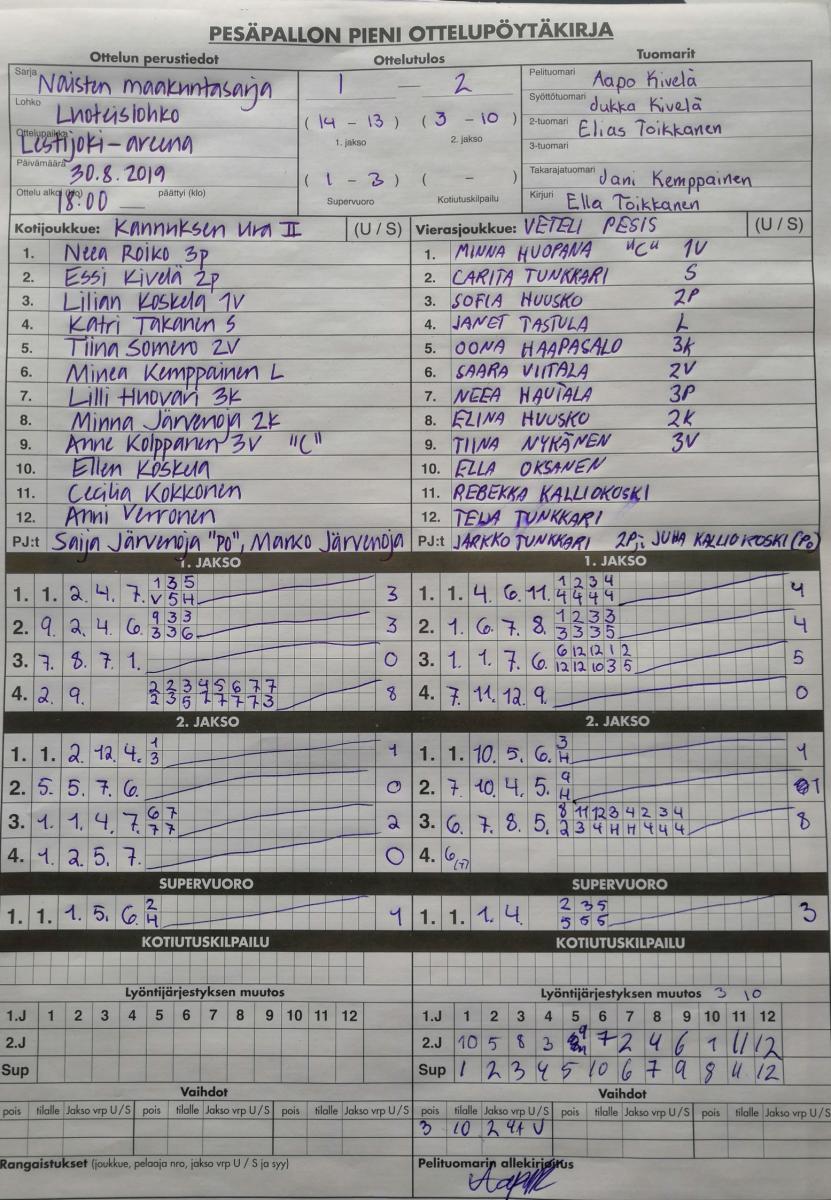 PESÄPALLON PIENI OTTELUPÖYTÄKIRJA
Ottelun perustiedot
Sarja Naisten maakuntasarja
Lohko Luoteislohko
Ottelupaikka Lestijoki-areena
Päivämäärä 30.8.2019
Ottelu alkoi (klo) 18:00 päättyi (klo)
Ottelutulos
1 — 2
( 14 – 13 ) ( 3 – 10 )
1. jakso 2. jakso
( 1 – 3 ) ( – )
Supervuoro Kotiutuskilpailu
Tuomarit
Pelituomari Aapo Kivelä
Syöttötuomari Jukka Kivelä
2-tuomari Elias Toikkanen
3-tuomari
Takarajatuomari Jani Kemppainen
Kirjuri Ella Toikkanen
Kotijoukkue: Kannuksen Ura II (U / S)
1. Neea Roiko 3p
2. Essi Kivelä 2p
3. Lilian Koskela 1V
4. Katri Takanen S
5. Tiina Somero 2V
6. Minea Kemppainen L
7. Lilli Huovari 3k
8. Minna Järvenoja 2k
9. Anne Kolppanen 3V "C"
10. Ellen Koskela
11. Cecilia Kokkonen
12. Anni Verronen
PJ:t Saija Järvenoja "PO", Marko Järvenoja
Vierasjoukkue: VETELI PESIS (U / S)
1. MINNA HUOPANA "C" 1V
2. CARITA TUNKKARI S
3. SOFIA HUUSKO 2P
4. JANET TASTULA L
5. OONA HAAPASALO 3K
6. SAARA VIITALA 2V
7. NEEA HAUTALA 3P
8. ELINA HUUSKO 2K
9. TIINA NYKÄNEN 3V
10. ELLA OKSANEN
11. REBEKKA KALLIOKOSKI
12. TEIJA TUNKKARI
PJ:t JARKKO TUNKKARI 2PJ: JUHA KALLIOKOSKI (PO)
1. JAKSO
1 3 5
1. 1. 2. 4. 7. V 5 H 3
9 3 3
2. 9. 2. 4. 6. 3 3 6 3
3. 7. 8. 7. 1. 0
2 2 3 4 5 6 7 7
4. 2. 9. 2 3 5 7 7 7 7 3 8
2. JAKSO
1
1. 1. 2. 12. 4. 3 1
2. 5. 5. 7. 6. 0
6 7
3. 1. 1. 4. 7. 7 7 2
4. 1. 2. 5. 7. 0
SUPERVUORO
2
1. 1. 1. 5. 6. H 1
KOTIUTUSKILPAILU
Lyöntijärjestyksen muutos
1.J 1 2 3 4 5 6 7 8 9 10 11 12
2.J
Sup
Vaihdot
pois tilalle Jakso vrp U/S pois tilalle Jakso vrp U/S pois tilalle Jakso vrp U/S
Rangaistukset (joukkue, pelaaja nro, jakso vrp U / S ja syy)
1. JAKSO
1 2 3 4
1. 1. 4. 6. 11. 4 4 4 4 4
1 2 3 3
2. 1. 6. 7. 8. 3 3 3 5 4
6 12 12 1 2
3. 1. 1. 7. 6. 12 12 10 3 5 5
4. 7. 11. 12. 9. 0
2. JAKSO
3
1. 1. 10. 5. 6. H 1
9
2. 7. 10. 4. 5. H 1
8 11 12 3 4 2 3 4
3. 6. 7. 8. 5. 2 3 4 H H 4 4 4 8
4. 6 (7)
SUPERVUORO
2 3 5
1. 1. 1. 4. 5 5 5 3
KOTIUTUSKILPAILU
Lyöntijärjestyksen muutos 3 10
1.J 1 2 3 4 5 6 7 8 9 10 11 12
2.J 10 5 8 3 9 7 2 4 6 1 11 12
Sup 1 2 3 4 5 10 6 7 9 8 11 12
Vaihdot
pois tilalle Jakso vrp U/S pois tilalle Jakso vrp U/S pois tilalle Jakso vrp U/S
3 10 2 U
Pelituomarin allekirjoitus